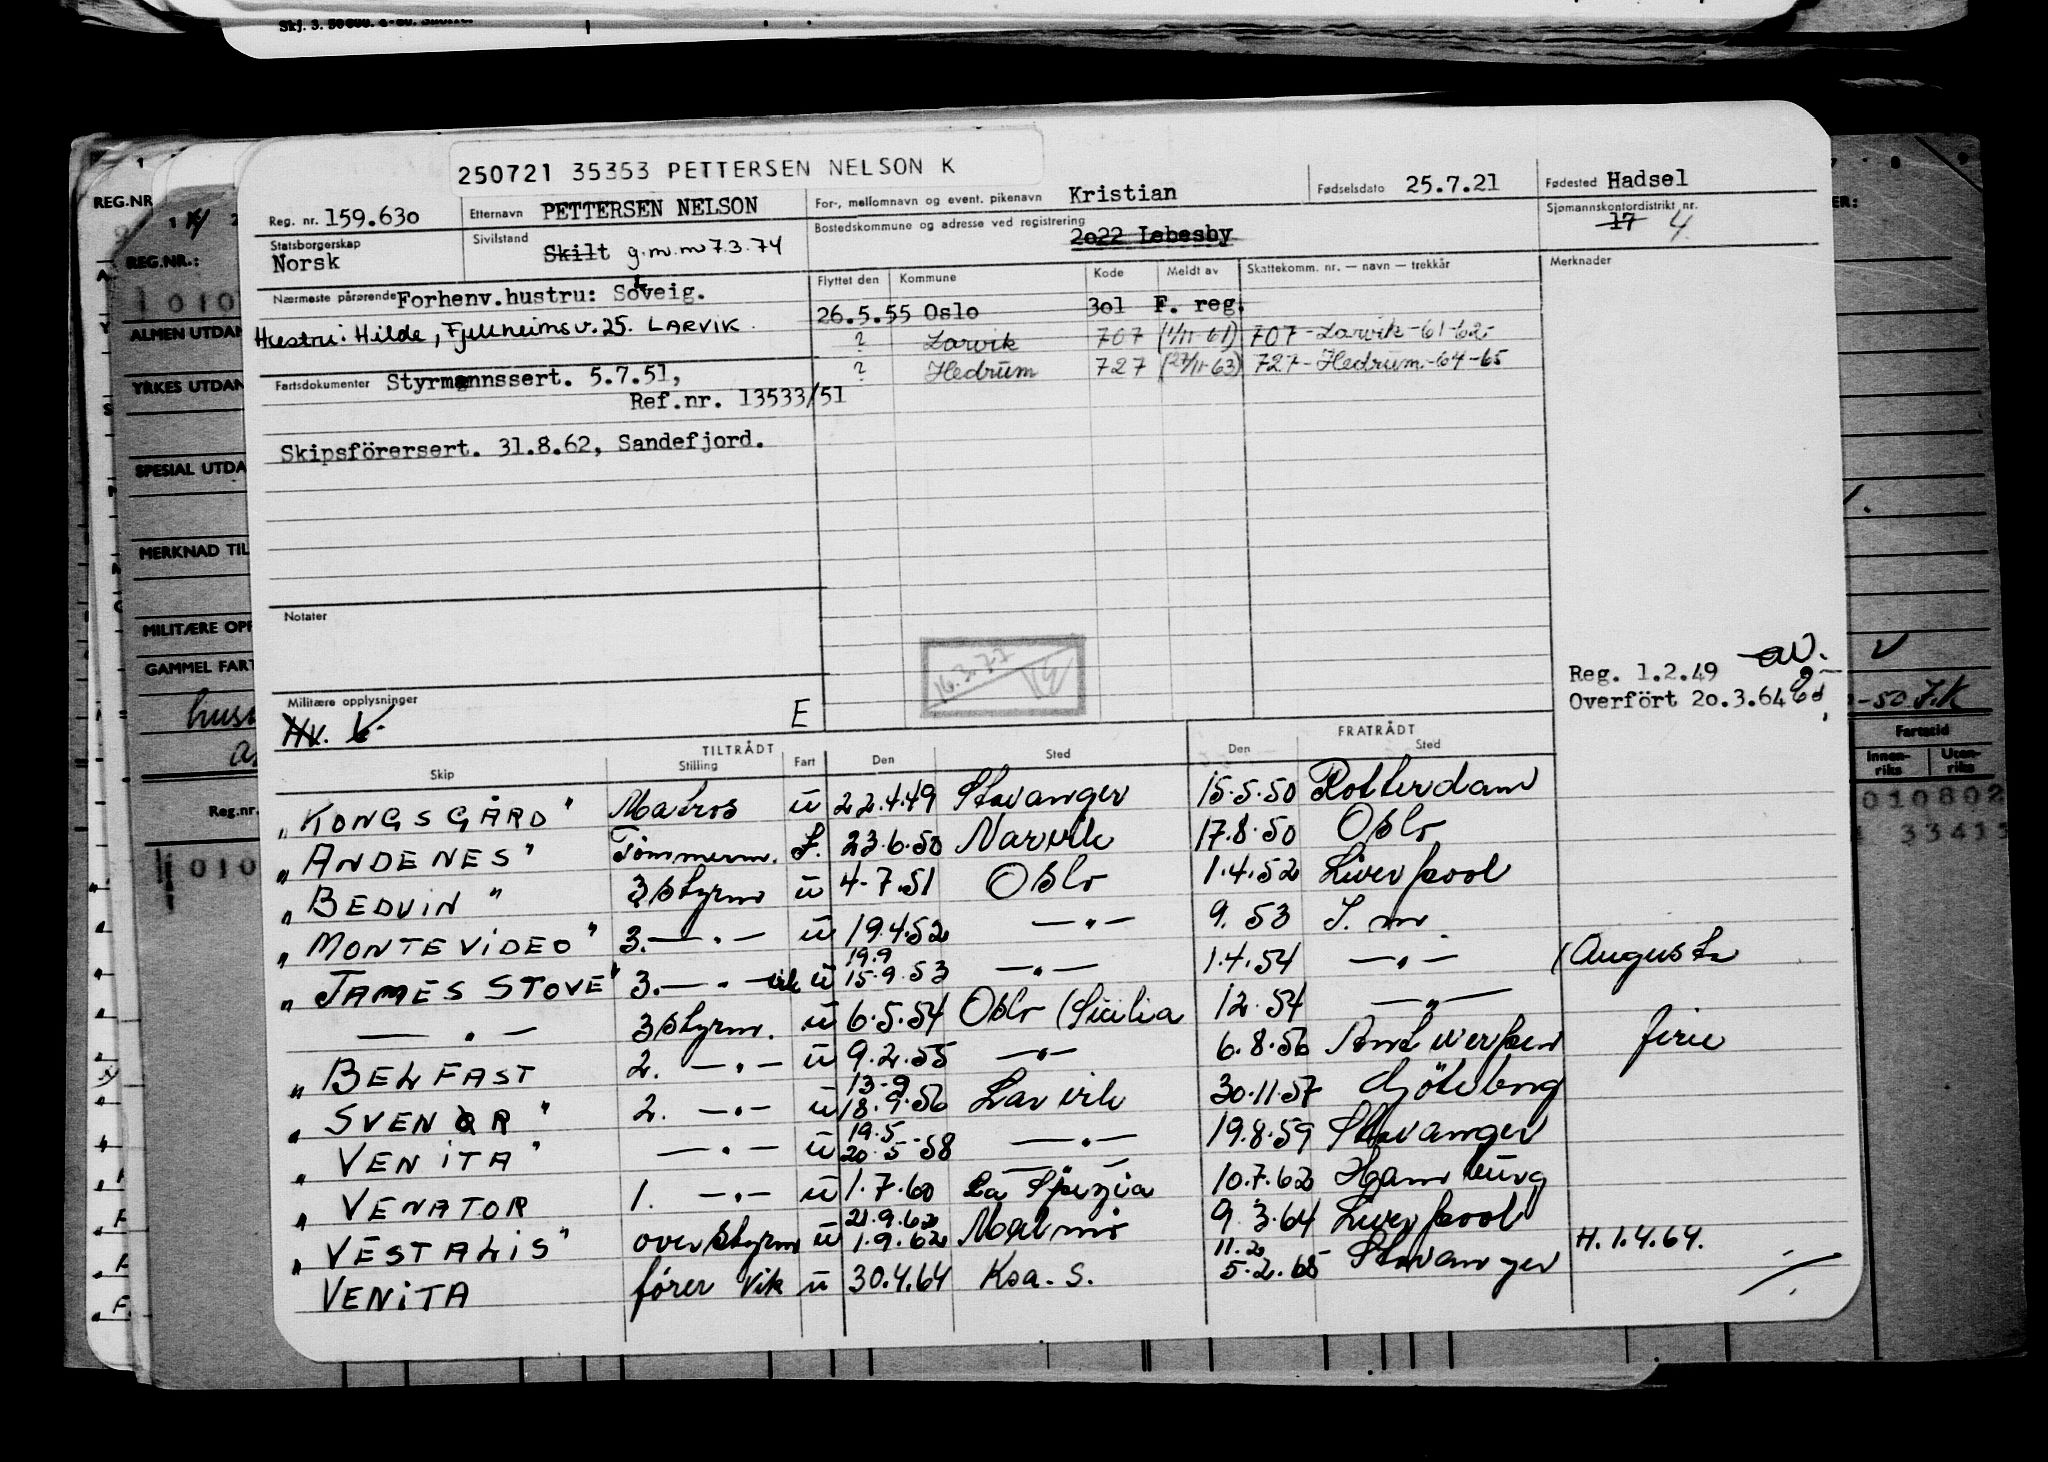 Skj. 3.
250721 35353 PETTERSEN NELSON K
Reg. nr. 159.630 Etternavn PETTERSEN NELSON For-, mellomnavn og event. pikenavn Kristian Fødselsdato 25.7.21 Fødested Hadsel
Statsborgerskap Norsk Sivilstand Skilt g.m.m 7.3.74 Bostedskommune og adresse ved registrering 2022 Lebesby Sjømannskontordistrikt nr. 17 4
Nærmeste pårørende Forhenv.hustru: Soveig. Flyttet den Kommune Kode Meldt av Skattekomm. nr. — navn — trekkår Merknader
Hustru: Hilde, Fjellheimsv. 25. LARVIK
26.5.55 Oslo 3o1 F. reg.
? Larvik 707 (1/11-61) 707-Larvik-61-62-
? Hedrum 727 (27/11-63) 727-Hedrum-64-65
Fartsdokumenter Styrmannssert. 5.7.51,
Ref.nr. 13533/51
Skipsförersert. 31.8.62, Sandefjord.
Notater
16.3.77
Reg. 1.2.49
Overfört 20.3.64
Militære opplysninger
Hv. E
TILTRÅDT FRATRÅDT
Skip Stilling Fart Den Sted Den Sted
"KONGSGÅRD" Matros u 22.4.49 Stavanger 15.5.50 Rotterdam
"ANDENES" Tömmerm. 23.6.50 Narvik 17.8.50 Oslo
"BEDVIN" 3 styrm u 4.7.51 Oslo 1.4.52 Liverpool
"MONTEVIDEO" 3.—"— u 19.4.52 —"— 9. 53
"JAMES STOVE" 3.—"— vik u 19.9 15.9.53 —"— 1.4.54 —"— (Augusta
—"— 3 styrm. u 6.5.54 Oslo (Sicilia 12.54 —"—
"BELFAST 2. —"— u 9.2.55 —"— 6.8.56 Antwerpen ferie
"SVENØR" 2. —"— u 13-9 18.9.56 Larvik 30.11.57 Göteborg
"VENITA" —"— u 19.5 20.5.58 —"— 19.8.59 Stavanger
"VENATOR 1. —"— u 1.7.60 La Spezia 10.7.62 Hamburg
"VESTALIS" overstyrm u 21.9.62 1.9.62 Malmö 9.3.64 Liverpool
VENITA fører vik u 30.4.64 Koa. S. 11.2 5.2.65 Stavanger H.1.4.64.
REG.NR
REG.NR.:
ALMEN UTDAN
YRKES UTDAN
SPESIAL UTDA
MERKNAD TIL
MILITÆRE OPP
GAMMEL FART
Reg.nr.
0 1 0
Fartstid
Innen-riks Uten-riks
010802